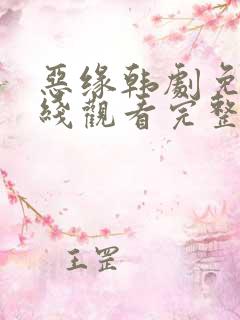 惡缘韩劇免
綫觀看完整
王罡